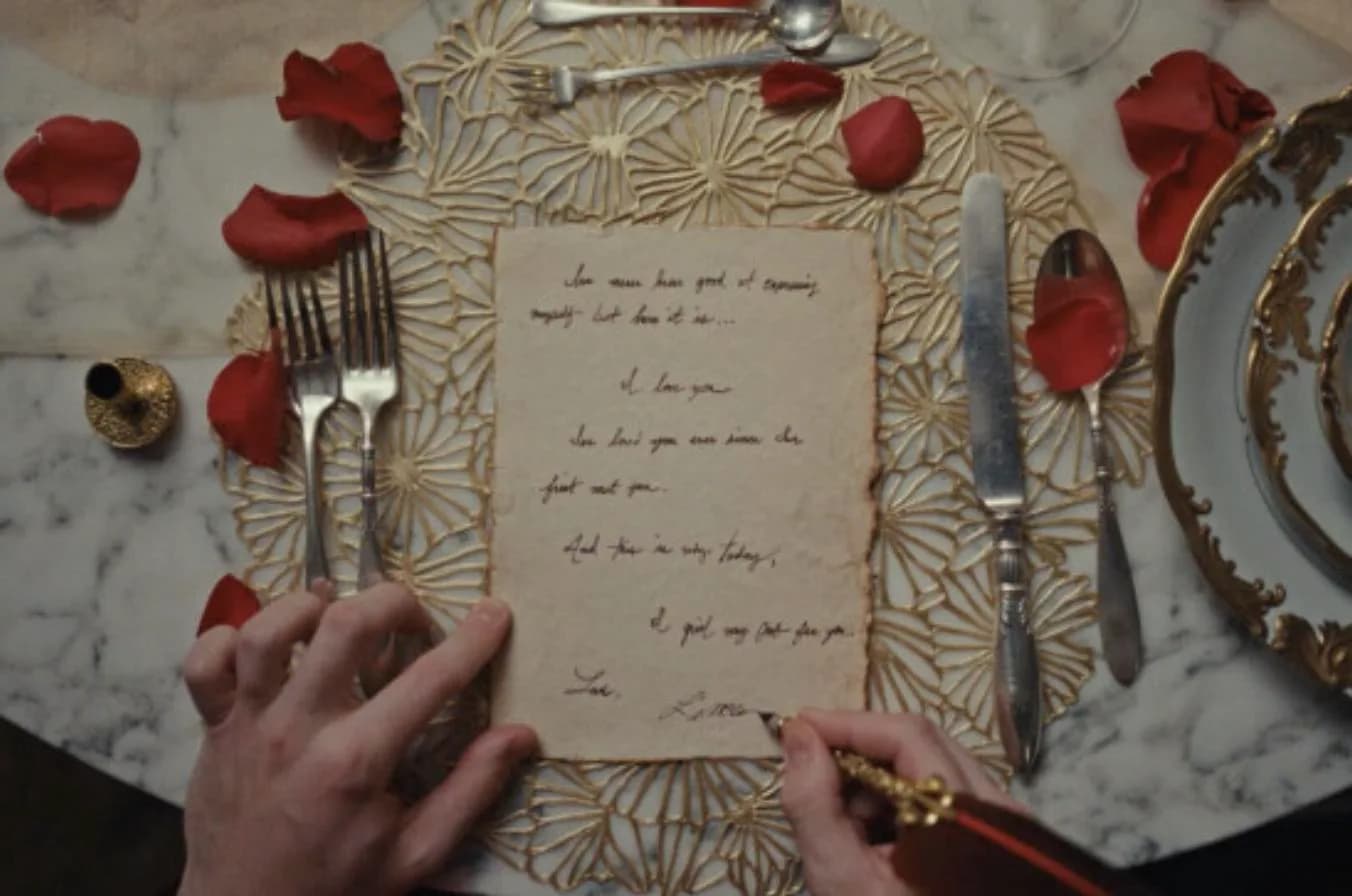 I've never been good at expressing
myself but here it is...
I love you
I've loved you ever since I've
first met you.
And this is why, today,
I give my for you.
Love,